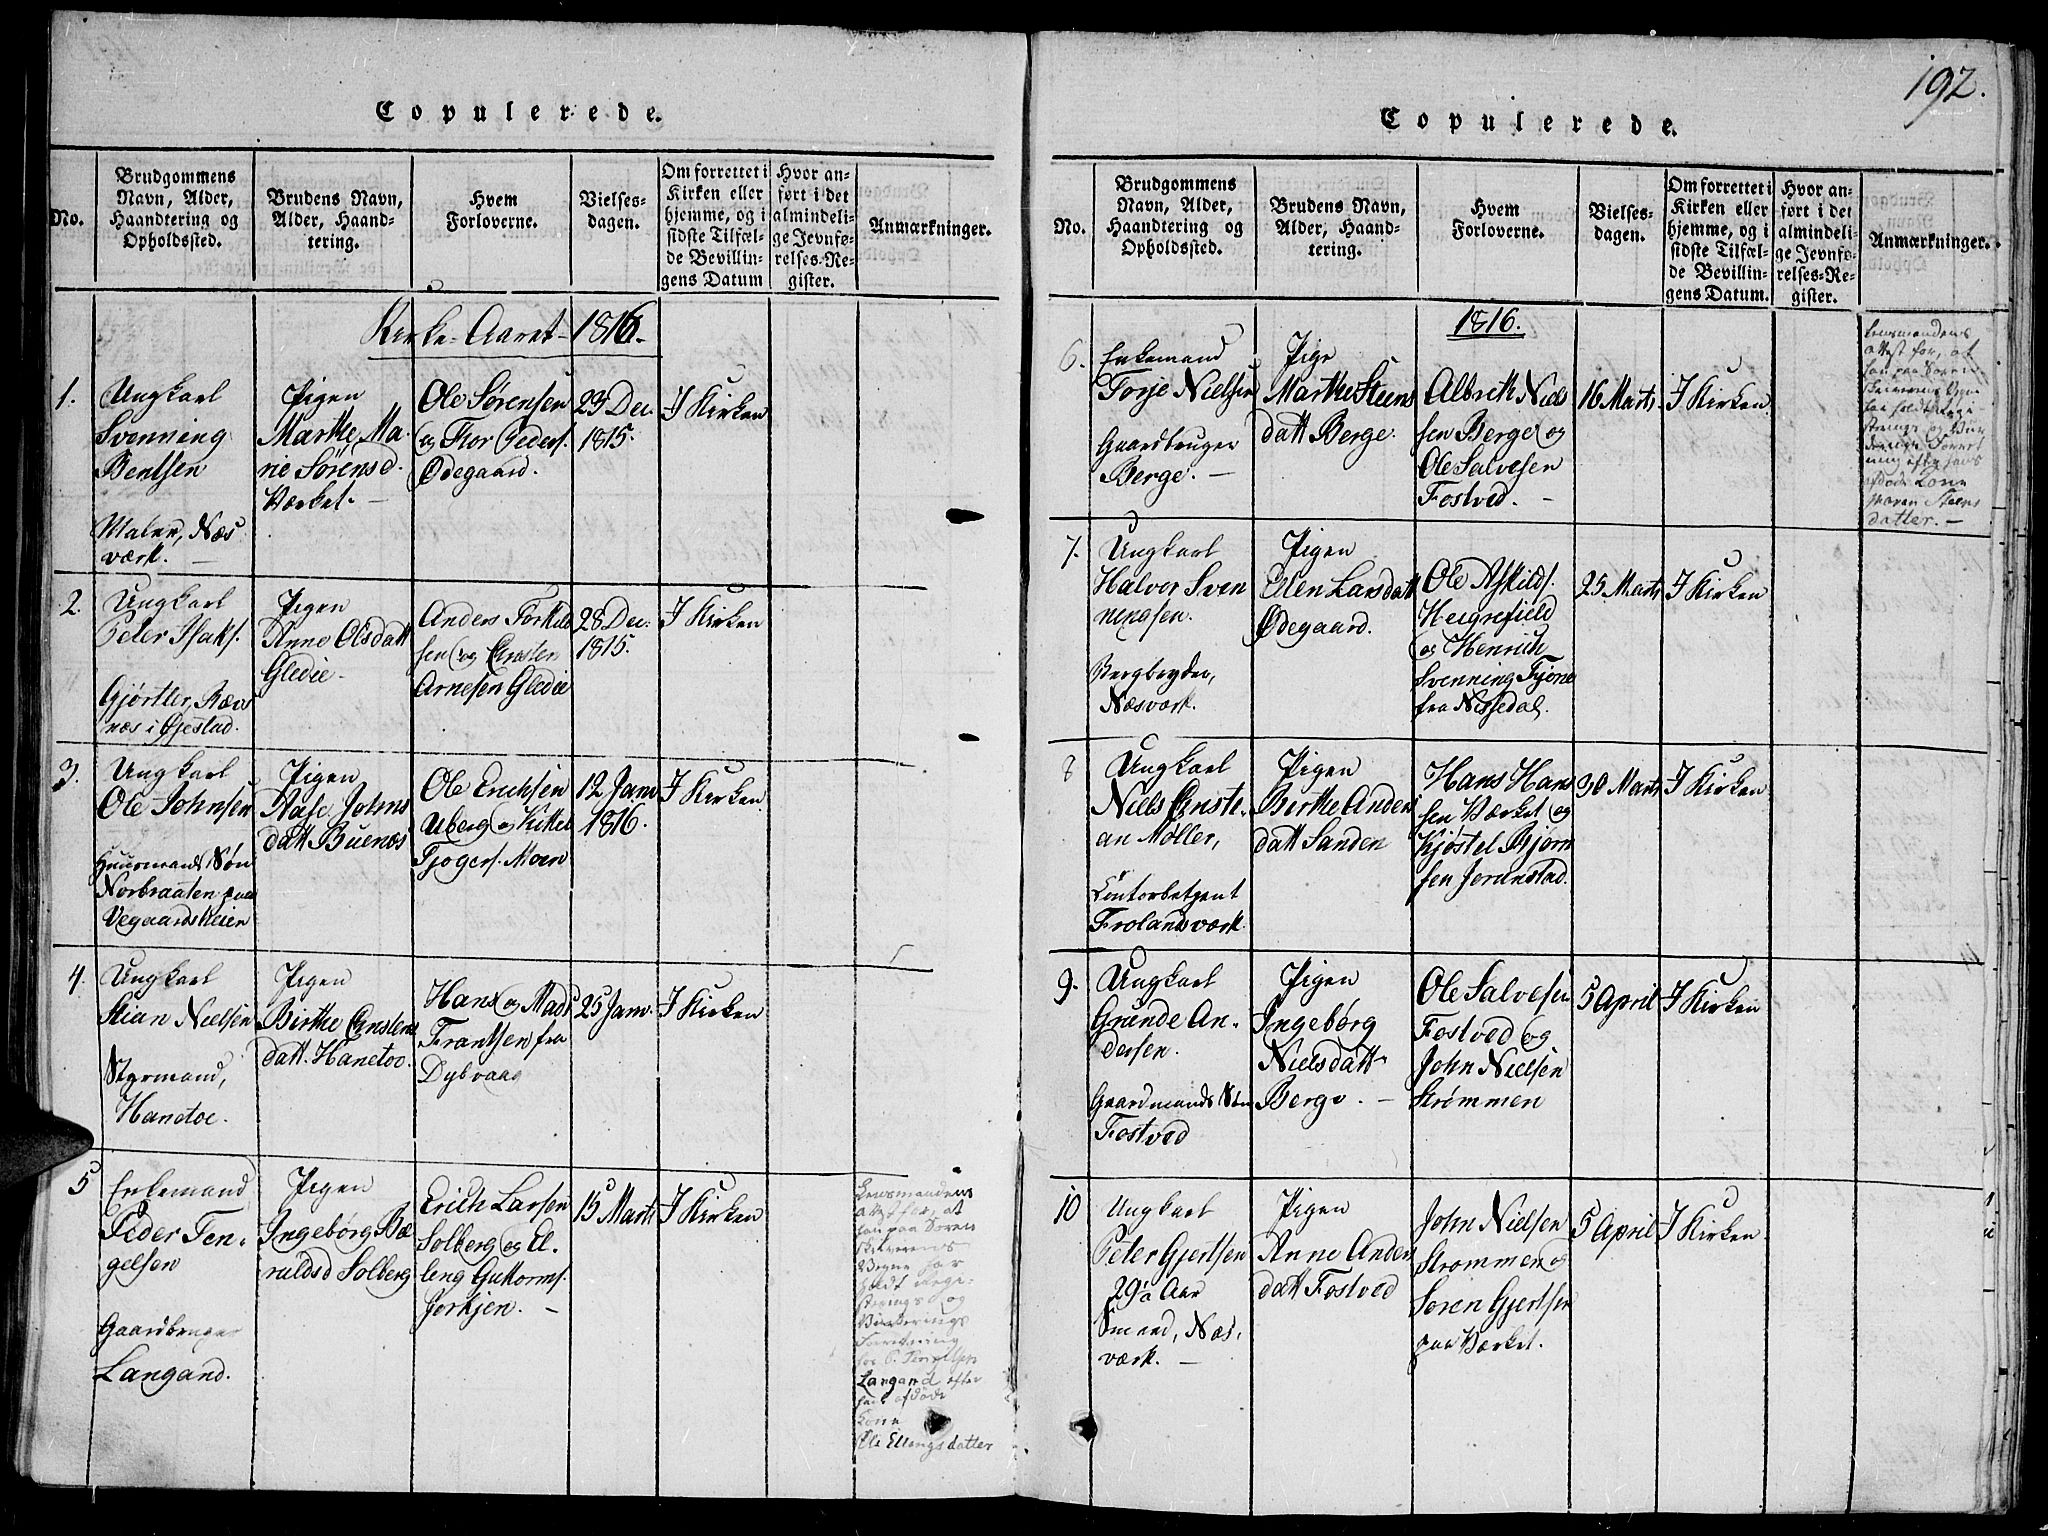 192.
Copulerede.
No.
Brudgommens
Navn, Alder,
Haandtering og
Opholdssted.
Brudens Navn,
Alder, Haand-
tering.
Hvem
Forloverne.
Vielses-
dagen.
Om forrettet i
Kirken eller
hjemme, og i
sidste Tilfæl-
de Bevillin-
gens Datum
Hvor an-
ført i det
almindeli-
ge Jevnfø-
relses-Re-
gister.
Anmærkninger.
Kirke-Aaret 1816.
1.
Ungkarl
Svenning
Bentsen
Maler, Næs
værk. —
Pigen
Marthe Ma-
rie Sørensd.
Værket. —
Ole Sørensen
og Thor Peders.
Ødegaard.
23 Dec.
1815.
I Kirken
2.
Ungkarl
Peter Isaks.
Gjørtler, Ræv
næs i Øjestad.
Pigen
Anne Olsdatt
Gledie
Anders Torkild
sen og Christen
Arnesen Gledie
28 Dec.
1815.
I Kirken
3.
Ungkarl
Ole Johnsen
Huusmands Søn
Norbraaten paa
Vegaardsheien
Pigen
Aase Johns
datt Buenæs
Ole Erichsen
Uberg og Kittel
Tjogers. Moen
12 Jan
1816.
I Kirken
4.
Ungkarl
Stian Nielsen
Styrmand,
Hanetoe.
Pigen
Birthe Christens
datt. Hanetoe.
Hans og Mads
Frantsen fra
Dybvaag
25 Jan.
I Kirken
5
Enkemand
Peder Ten-
gelsen
Gaardbruger
Langand.
Pigen
Ingebørg Bæ
ruldsd Solberg
Erich Larsen
Solberg og El-
leng Guttorms.
Jorkjen. —
15 Marts
I Kirken
Lensmandens
Attest for, at
han paa Soren
skriverens
Vegne har
holdt Regi-
strerings og
Vurderings
Forretning
for P. Tengelsen
Langand efter
hans afdøde
Kone
Ellengsdatter
Copulerede.
No.
Brudgommens
Navn, Alder,
Haandtering og
Opholdssted.
Brudens Navn,
Alder, Haand-
tering.
Hvem
Forloverne.
Vielses-
dagen.
Om forrettet i
Kirken eller
hjemme, og i
sidste Tilfæl-
de Bevillin-
gens Datum.
Hvor an-
ført i det
almindeli-
ge Jevnfø-
relses-Re-
gister.
Anmærkninger.
1816.
6.
Enkemand
Torje Nielsen
Gaardbruger
Berge. —
Pige
Marthe Steens
datt Berge.
Albrith Niels
sen Berge og
Ole Salvesen
Fostved. —
16 Marts
I Kirken
Lensmandens
Attest for, at
han paa Soren
skriverens Vegne
har holdt Regi-
strerings og Vur
derings Forret
ning efter hans
afdøde Kone
Maren Steens
datter. —
7.
Ungkarl
Halvor Sven
ningsen.
Bergbryder,
Næsværk.
Pigen
Ellen Larsdatt
Ødegaard.
Ole Askilds.
Heigrefield
og Henrich
Svenning Tjøne
fra Nissedal.
25 Marts
I Kirken
8
Ungkarl
Niels Christi-
an Møller,
Contorbetjent
Frolandsværk
Pigen
Birthe Anders
datt Sanden
Hans Hans
sen Værket og
Kjøstel Bjørn
sen Jorunstad.
30 Marts
I Kirken
9.
Ungkarl
Grunde An-
dersen.
Gaardmands Søn
Fostved
Pigen
Ingebørg
Nielsdatt
Berge. —
Ole Salvesen
Fostved og
John Nielsen
Strømmen
5 April
I Kirken
10
Ungkarl
Peter Gjertsen
29½ Aar
Smeed, Næs-
værk. —
Pigen
Anne Anders
datt Fostved
John Nielsen
Strømmen og
Søren Gjertsen
paa Værket.
5 April
I Kirken